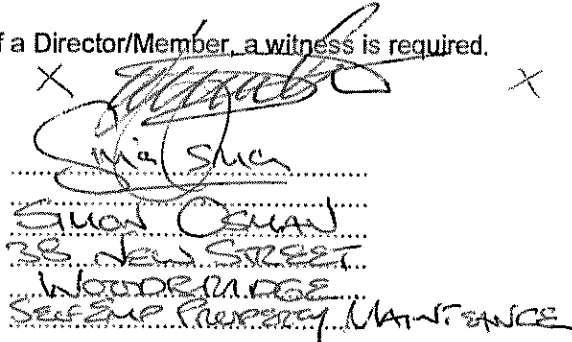 f a Director/Member, a witness is required.
X X
SIMON OSMAN
38 NEW STREET
WOODBRIDGE
SELF EMP PROPERTY MAINTENANCE